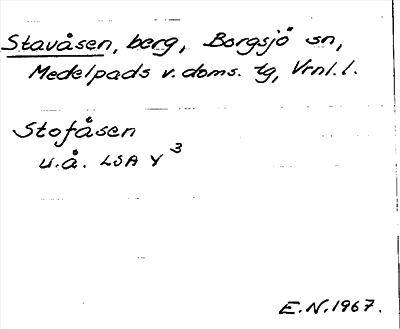 Stavåsen, berg, Borgsjö sn,
Medelpads v. doms. tg, Vrnl. l.
Stofåsen
u.å. LSA Y 3
E.N. 1967.